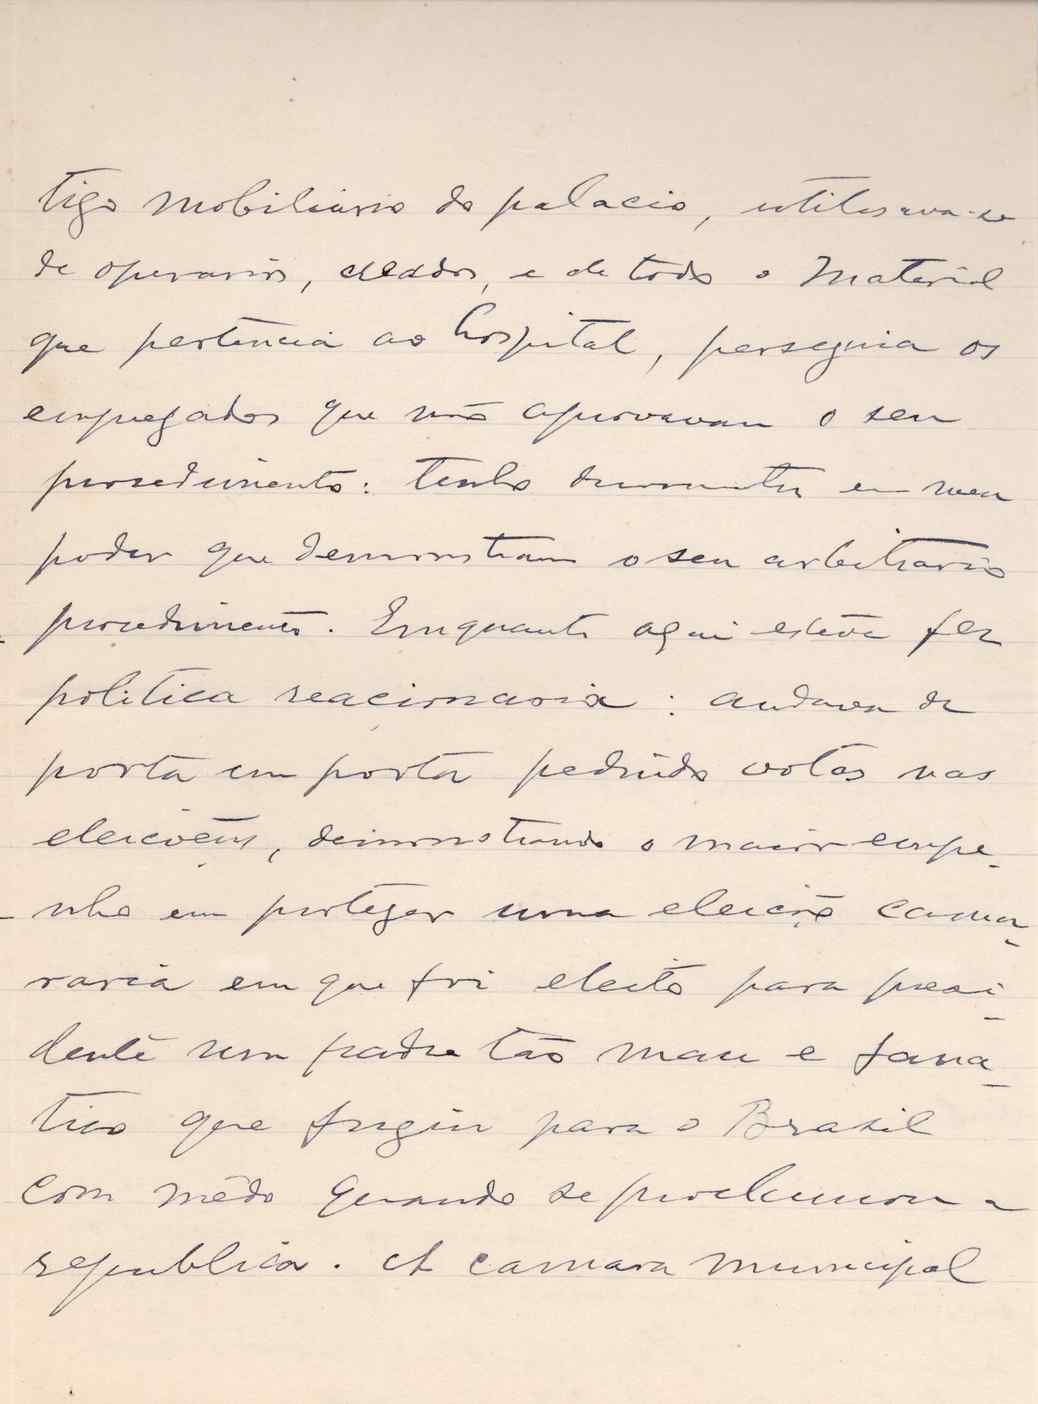 tigo mobiliario do palacio, utilisava-se
de operarios, creados, e de todo o material
que pertencia ao hospital, perseguia os
empregados que não aprovavam o seu
procedimento: tenho documentos em meu
poder que demonstram o seu arbitrario
procedimento. Emquanto aqui esteve fez
politica reacionaria: andava de
porta em porta pedindo votos nas
eleicões, demonstrando o maior empe-
-nho em proteger uma eleição cama-
raria em que foi eleito para presi-
dente um padre tão mau e fana-
tico que fugiu para o Brasil
com mêdo quando se proclamou a
republica. A camara municipal